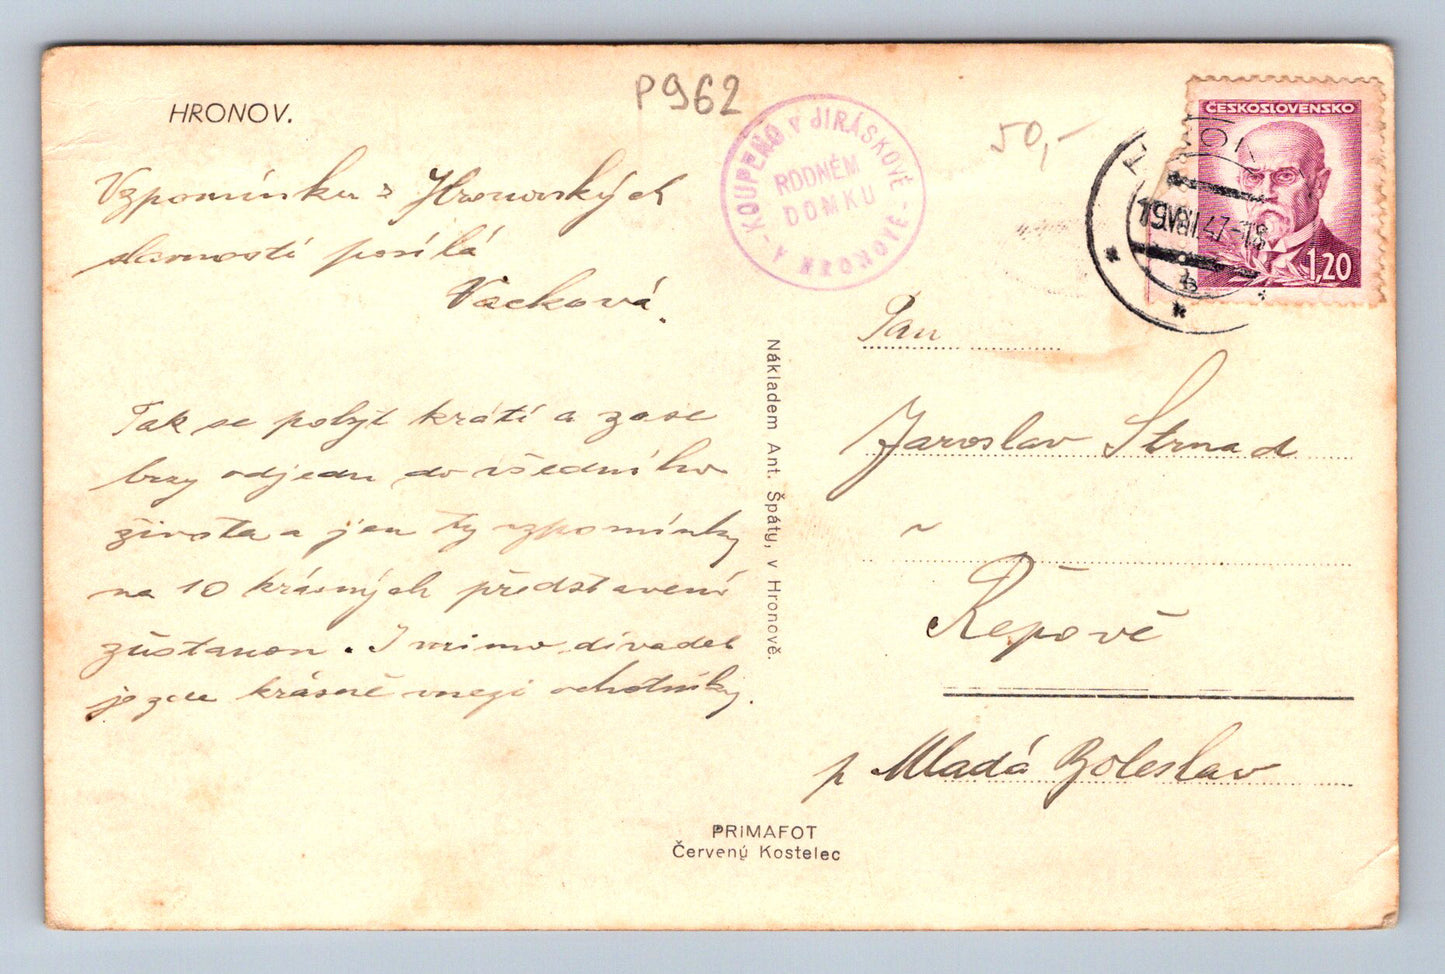 HRONOV.
P962
50,-
KOUPENO V JIRÁSKOVĚ
RODNÉM
DOMKU
ČESKOSLOVENSKO
1,20
Vzpomínku z Hronovských
slavností posílá
Vacková.
Tak se pobyt krátí a zase
brzy odjedu do všedního
života a jen ty vzpomínky
na 10 krásných představení
zůstanou. I mimo divadel
je zde krásně mezi ochotníky.
Nákladem Ant. Špáty, v Hronově.
Pan
Jaroslav Strnad
v
Řepově
p Mladá Boleslav
PRIMAFOT
Červený Kostelec